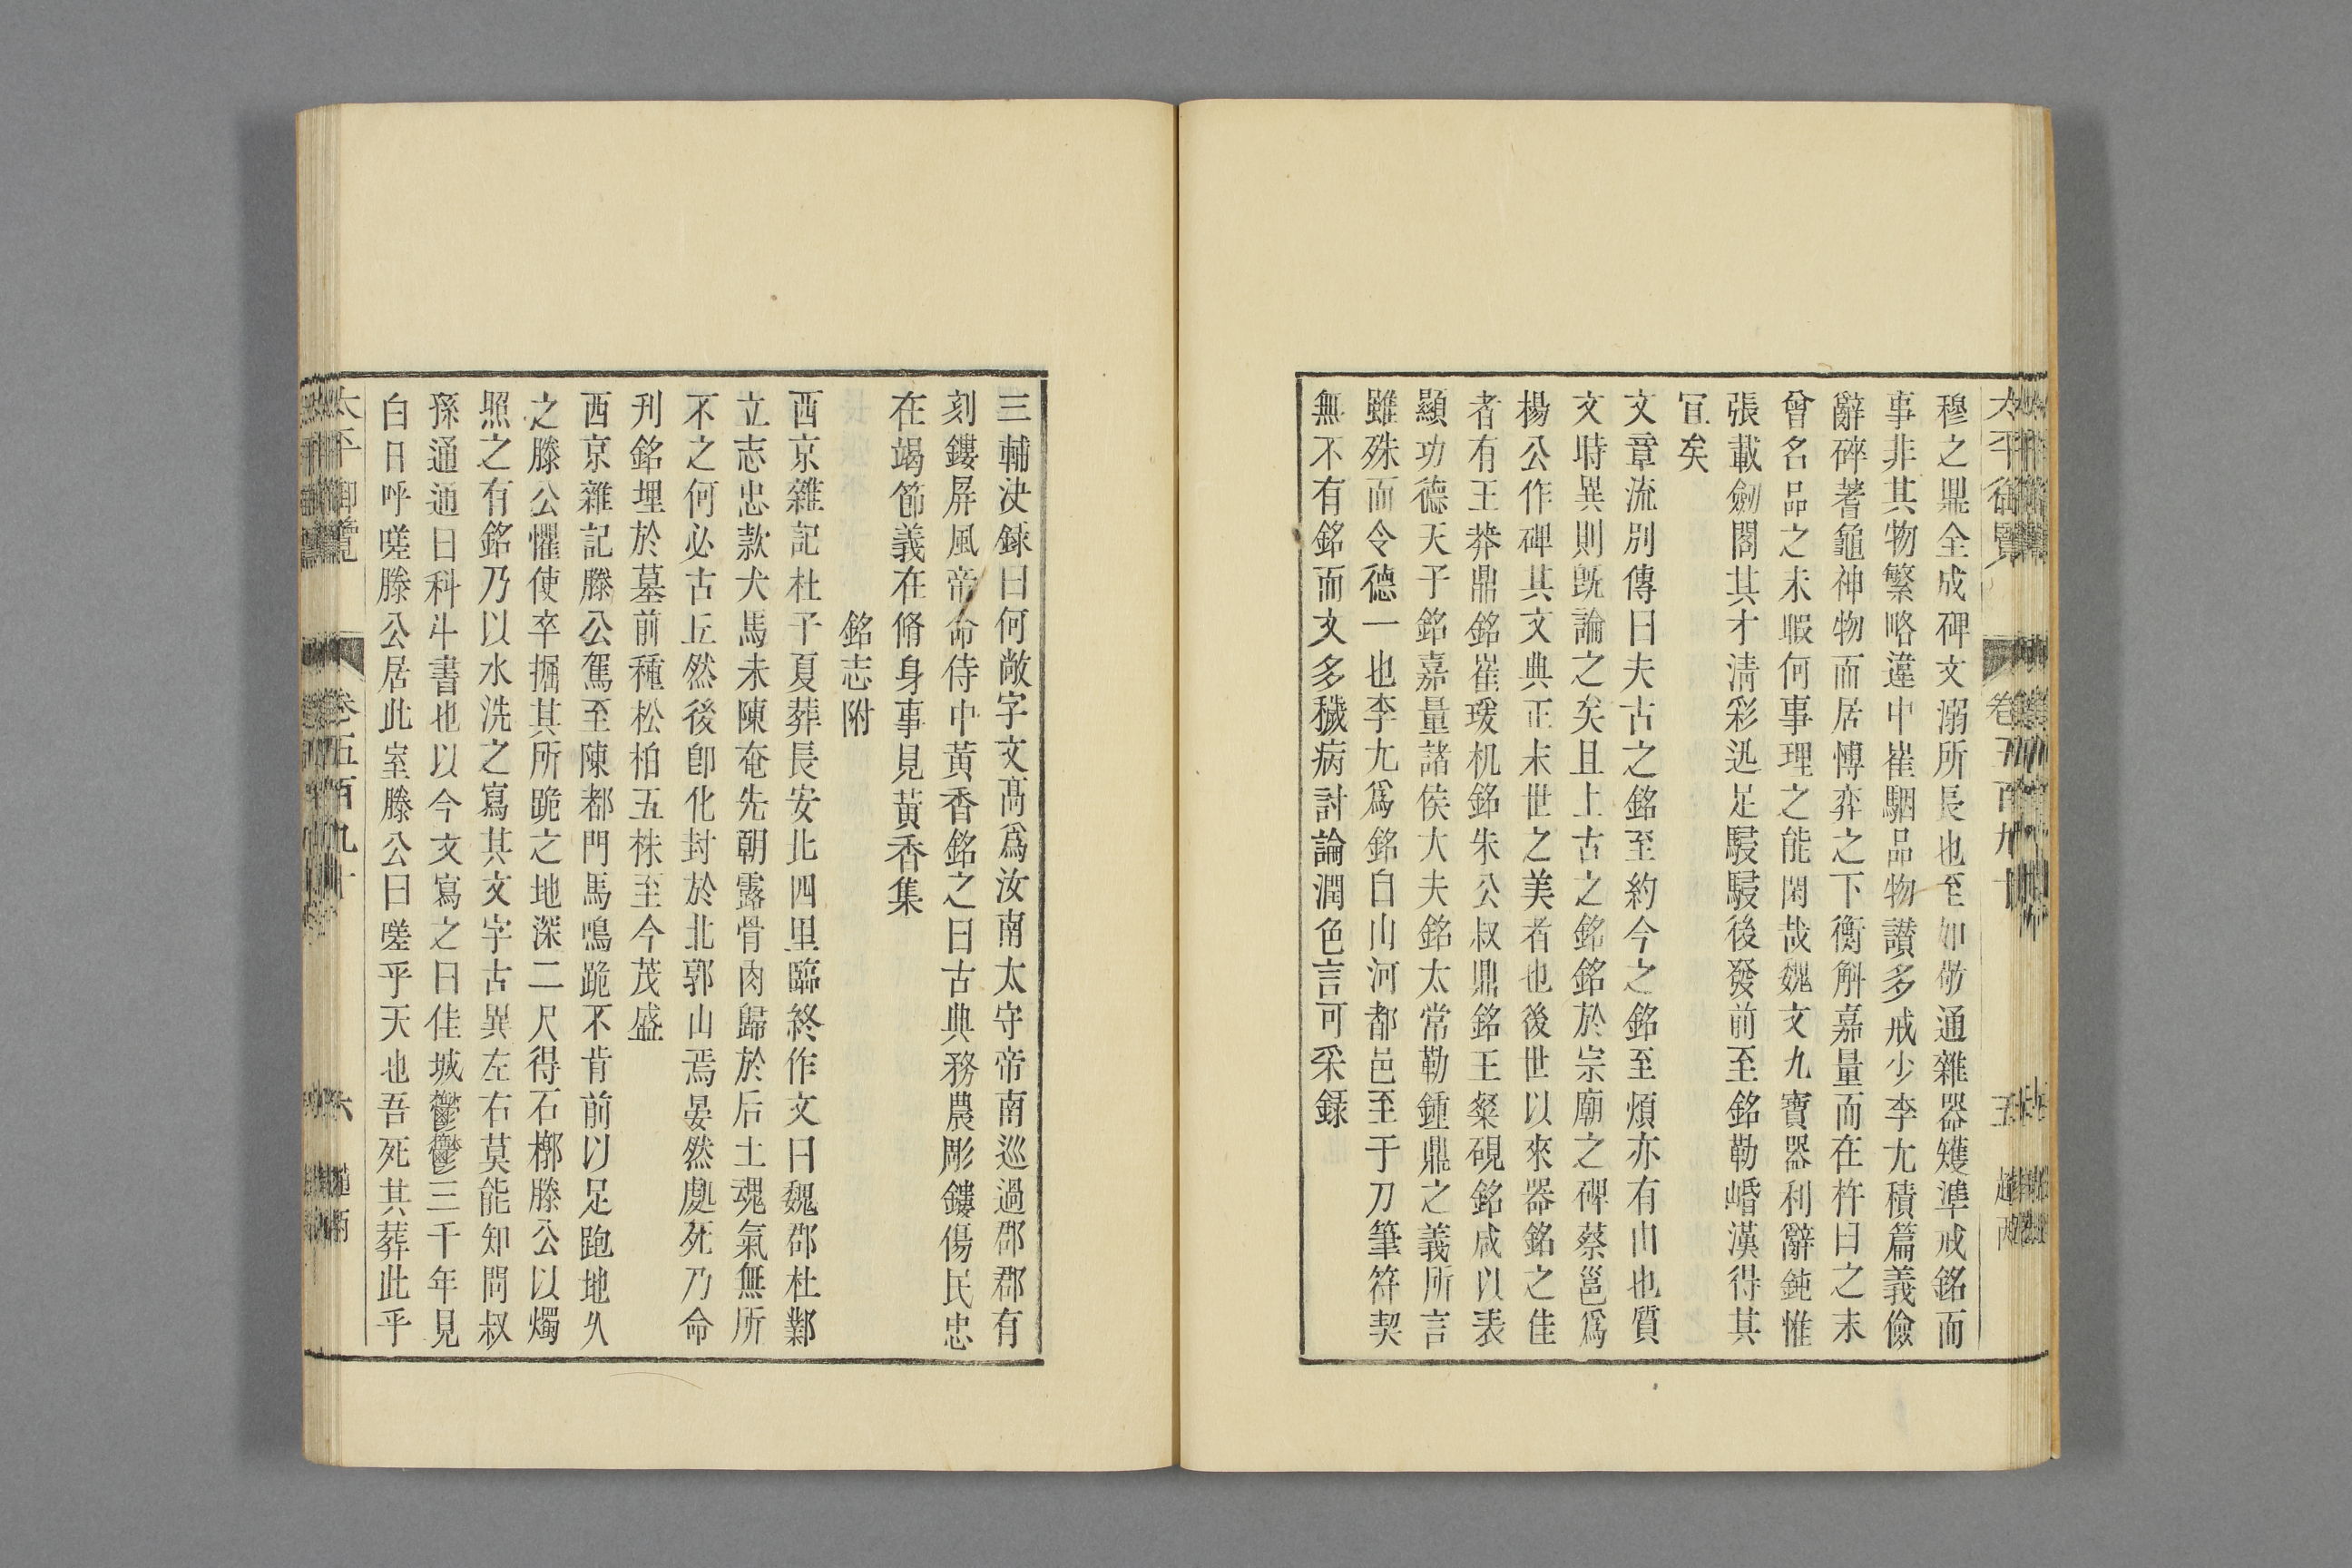 太平御覽 卷五百九十 五 趙丙
穆之鼎全成碑文溺所長也至如敬通雜器矱準戒銘而
事非其物繁略違中崔駰品物讃多戒少李尤積篇義儉
辭碎蓍龜神物而居愽弈之下衡斛嘉量而在杵臼之末
曾名品之未暇何事理之能閑哉魏文九寶器利辭鈍惟
張載劒閣其才淸彩迅足駸駸後發前至銘勒㟭漢得其
冝矣
文章流别傳曰夫古之銘至約今之銘至煩亦有由也質
文時異則旣論之矣且上古之銘銘於宗廟之碑蔡邕爲
揚公作碑其文典正末世之美者也後世以來器銘之佳
者有王莽鼎銘崔瑗机銘朱公叔鼎銘王粲硯銘咸以表
顯功德天子銘嘉量諸侯大夫銘太常勒鍾鼎之義所言
雖殊而令德一也李尤爲銘自山河都邑至于刀筆符契
無不有銘而文多穢病討論潤色言可采錄
三輔決錄曰何敞字文髙爲汝南太守帝南巡過郡郡有
刻鏤屏風帝命侍中黃香銘之曰古典務農彫鏤傷民忠
在竭節義在脩身事見黃香集
銘志附
西京雜記杜子夏葬長安北四里臨終作文曰魏郡杜鄴
立志忠款犬馬未陳奄先朝露骨肉歸於后土魂氣無所
不之何必古丘然後卽化封於北郭山焉晏然處死乃命
刋銘埋於墓前種松柏五株至今茂盛
西京雜記滕公駕至陳都門馬鳴跪不肯前以足跑地久
之滕公懼使卒掘其所跪之地深二尺得石槨滕公以燭
照之有銘乃以水洗之寫其文字古異左右莫能知問叔
孫通通曰科斗書也以今文寫之曰佳城鬱鬱三千年見
白日呼嗟滕公居此室滕公曰嗟乎天也吾死其葬此乎
太平御覽 卷五百九十 六 趙丙